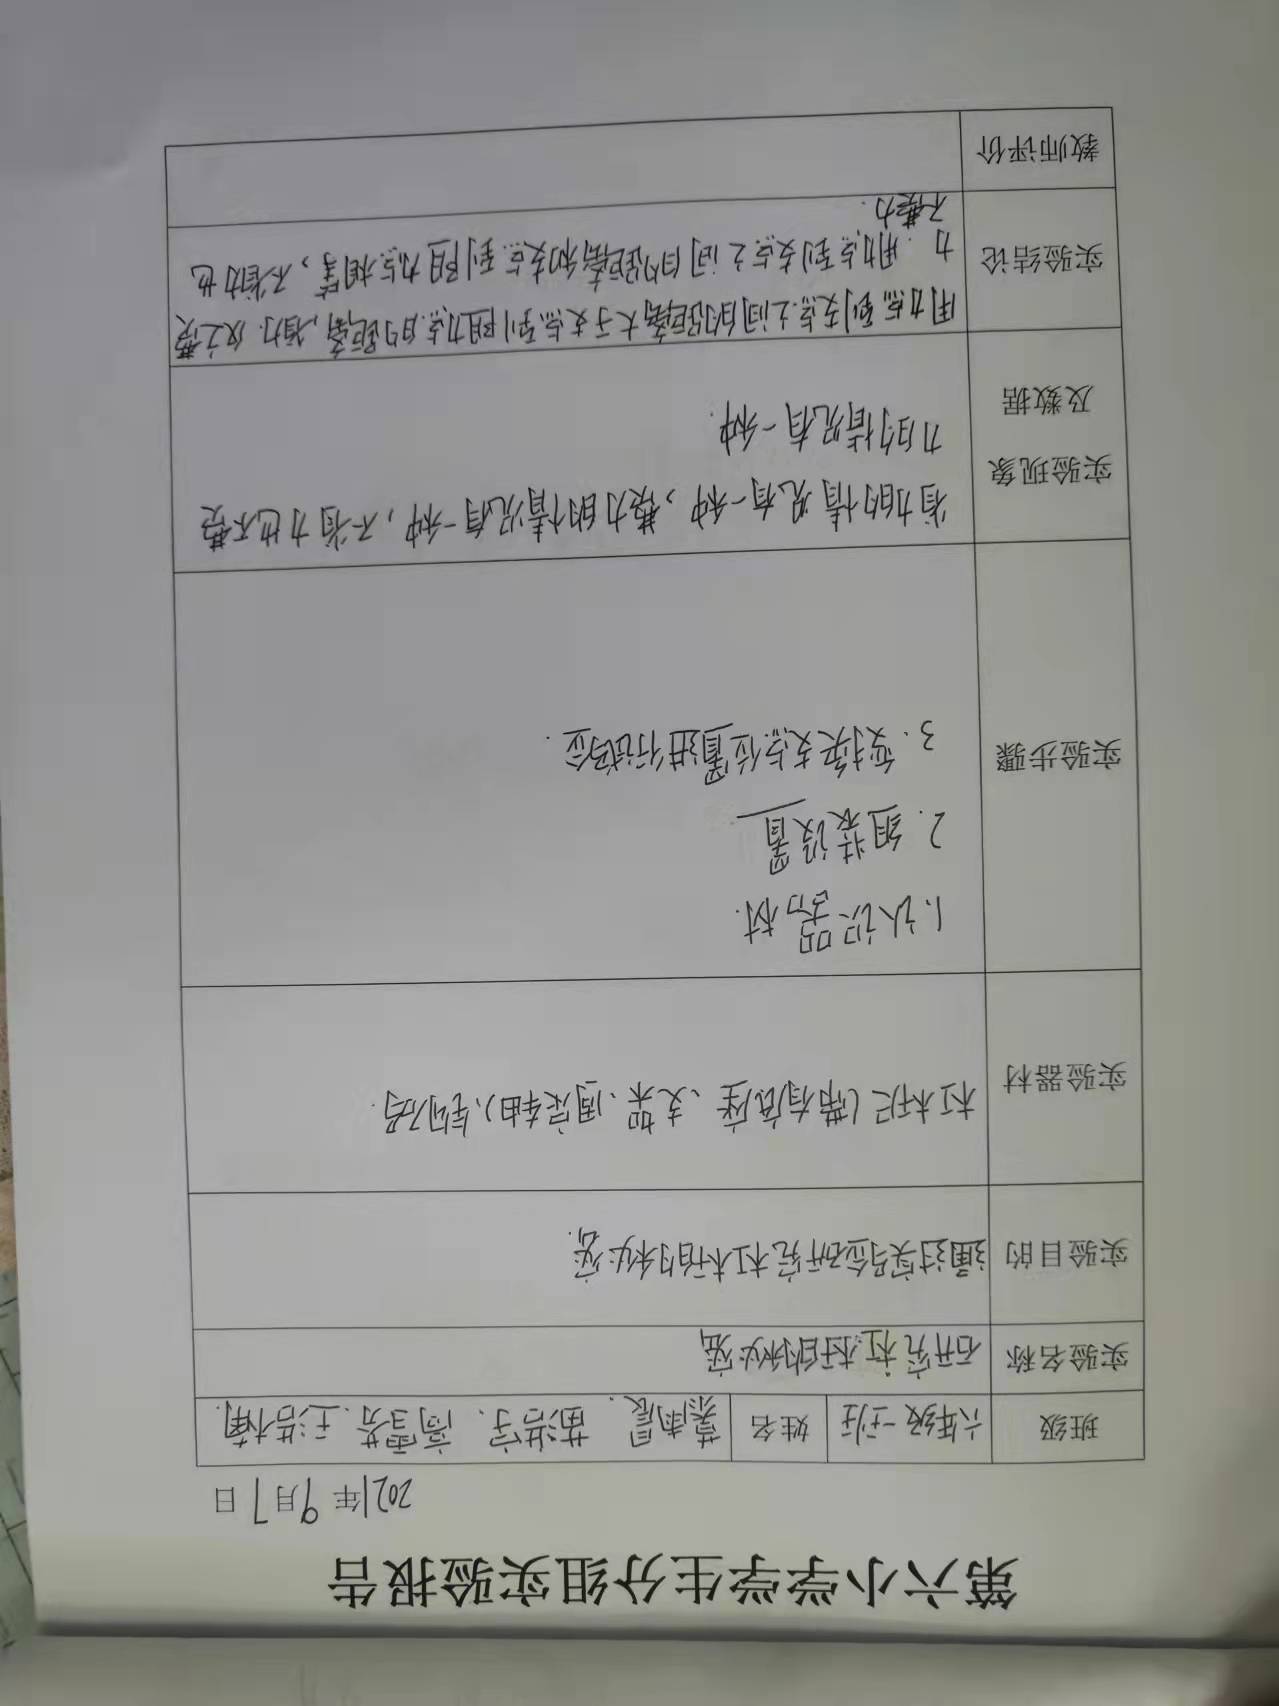 第六小学学生分组实验报告
2021年9月7日
班级 六年级一班 姓名 雨晨. 苗浩宇、高雪芬.王浩楠.
实验名称 研究杠杆的秘密
实验目的 通过实验研究杠杆的秘密.
实验器材 杠杆尺(带有底座、支架、固定轴)、钩码.
实验步骤
1.认识器材.
2.组装设置
3.变换支点位置进行试验.
实验现象
及数据
省力的情况有一种,费力的情况有一种,不省力也不费
力的情况有一种.
实验结论
用力点到支点之间的距离大于支点到阻力点的距离,省力.反之费
力.用力点到支点之间的距离和支点到阻力点相等,不省力也
不费力.
教师评价